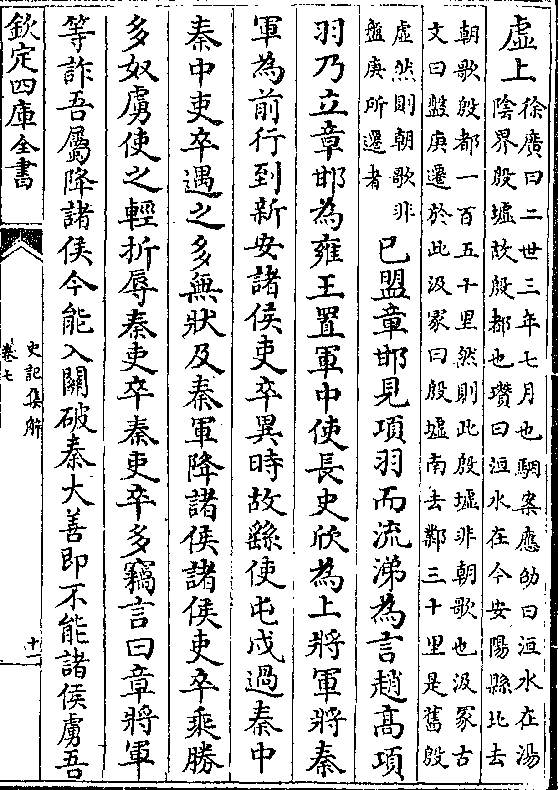 虛上
徐廣曰二世三年七月也駰案應劭曰洹水在湯
陰界殷墟故殷都也瓚曰洹水在今安陽縣北去
朝歌殷都一百五十里然則此殷墟非朝歌也汲冢古
文曰盤庚遷於此汲冢曰殷墟南去鄴三十里是舊殷
虛然則朝歌非
盤庚所遷者
已盟章邯見項羽而流涕為言趙髙項
羽乃立章邯為雍王置軍中使長史欣為上將軍將秦
軍為前行到新安諸侯吏卒異時故繇使屯戍過秦中
秦中吏卒遇之多無狀及秦軍降諸侯諸侯吏卒乘勝
多奴虜使之輕折辱秦吏卒秦吏卒多竊言曰章將軍
等詐吾屬降諸侯今能入關破秦大善即不能諸侯虜吾
欽定四庫全書
史記集解
卷七
十一